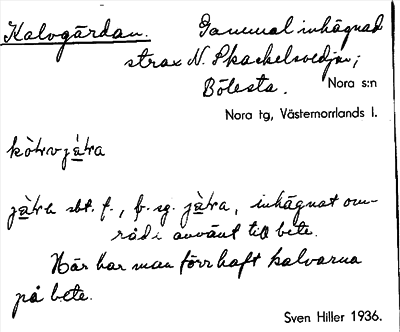 Kalvgärdan. Gammal inhägnad
strax N. Skackelsvedjan;
Bölesta. Nora s:n
Nora tg, Västernorrlands l.
jàtra sbt. f., b. sg. jàtra, inhägnat om-
råde använt till bete.
Här har man förr haft kalvarna
på bete.
Sven Hiller 1936.